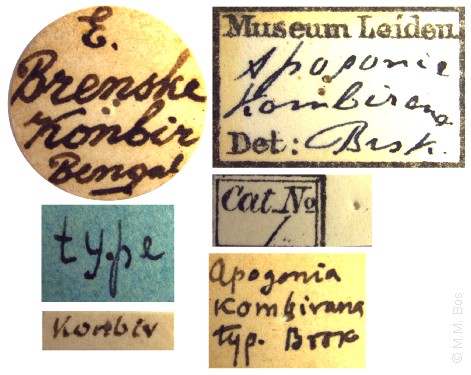 E.
Brenske
Konbir
Bengal
Museum Leiden.
Apogonia
Kombirana
Det: Brsk.
type
Cat. No
1
Konbir
Apogonia
Kombirana
typ. Brsk
© M.M. Bos